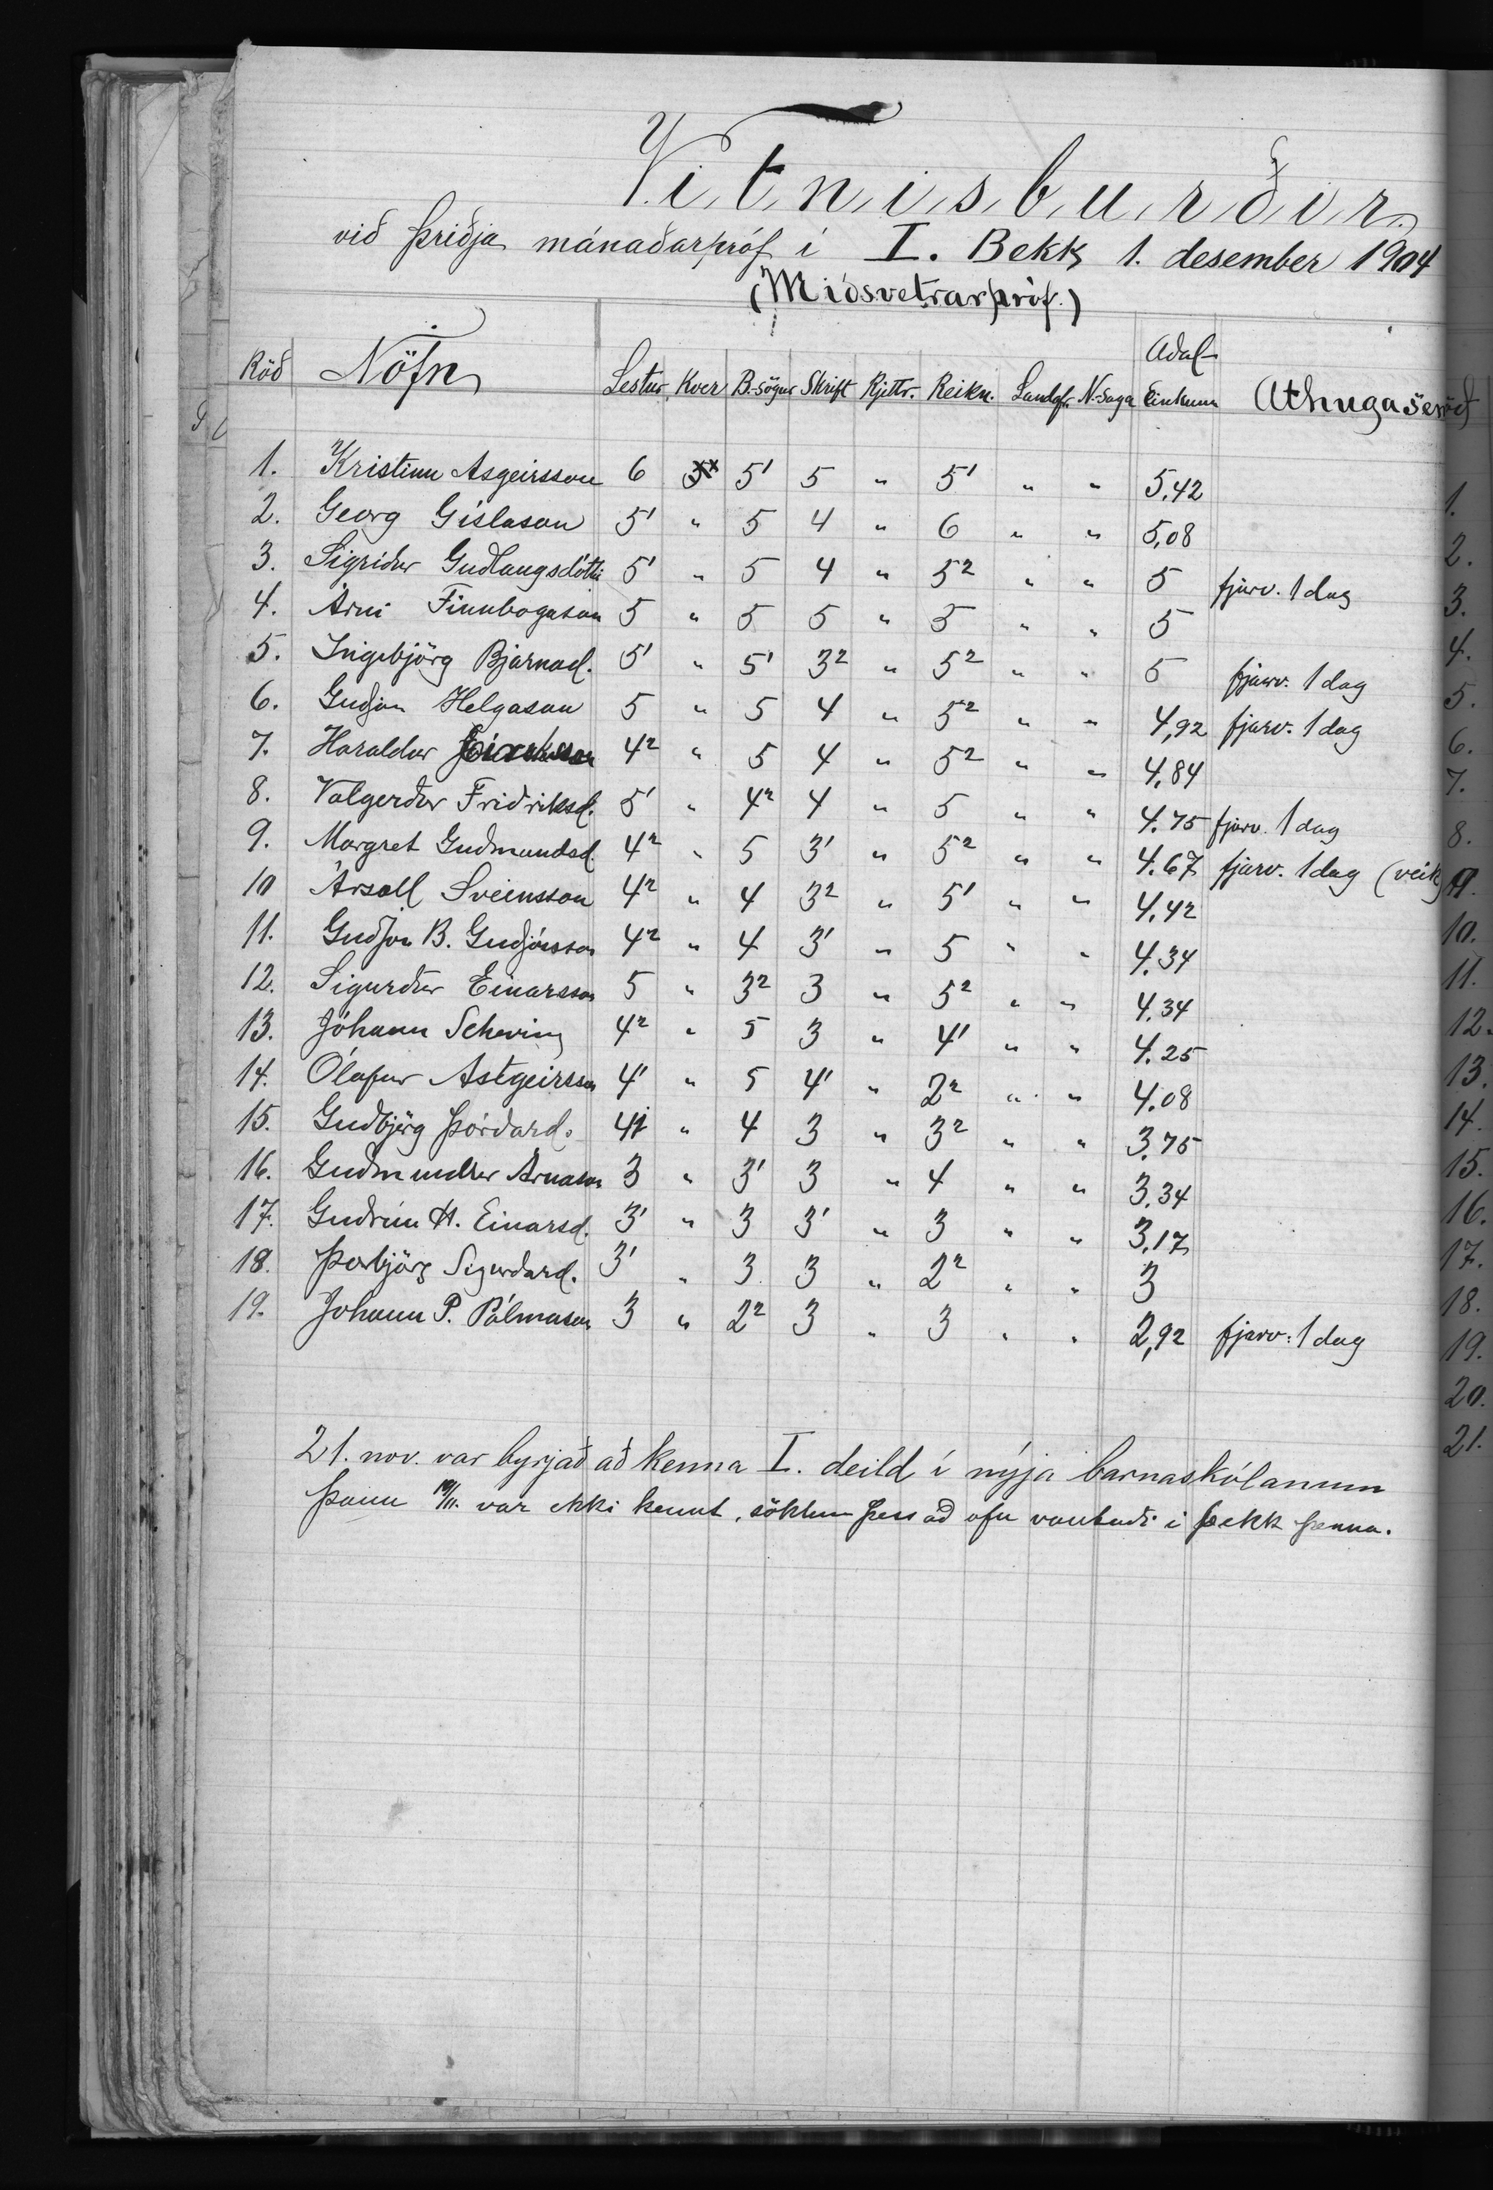 Vitnisburðir
við þriðja mánaðarpróf í I. Bekk 1. desember 1904
(Miðsvetrarpróf.)
Röð Nöfn Lestur Kver B.sögur Skrift Rjettr. Reikn. Landafr. N.saga Aðal-Einkunn Athugasemd
1. Kristinn Asgeirsson 6 5¹ 5 " 5¹ " " 5,42
2. Georg Gíslason 5¹ " 5 4 " 6 " " 5,08
3. Sigríður Guðlaugsdóttir 5¹ " 5 4 " 5² " " 5 fjarv. 1 dag
4. Árni Finnbogason 5 " 5 5 " 5 " " 5
5. Ingibjörg Bjarnad. 5¹ " 5¹ 3² " 5² " " 5 fjarv. 1 dag
6. Guðjón Helgason 5 " 5 4 " 5² " " 4,92 fjarv. 1 dag
7. Haraldur 4² " 5 4 " 5² " " 4.84
8. Valgerður Friðriksd. 5¹ " 4² 4 " 5 " " 4.75 fjarv. 1 dag
9. Margret Guðmundsd. 4² " 5 3¹ " 5² " " 4.67 fjarv. 1 dag (veik)
10 Ársæll Sveinsson 4² " 4 3² " 5¹ " " 4,42
11. Guðjón B. Guðjónsson 4² " 4 3¹ " 5 " " 4.34
12. Sigurður Einarsson 5 " 3² 3 " 5² " " 4.34
13. Jóhann Scheving 4² " 5 3 " 4¹ " " 4.25
14. Ólafur Astgeirsson 4¹ " 5 4¹ " 2² " " 4.08
15. Guðbjörg Þórðard. 4¹ " 4 3 " 3² " " 3,75
16. Guðmundur Árnason 3 " 3¹ 3 " 4 " " 3.34
17. Guðrún H. Einarsd. 3¹ " 3 3¹ " 3 " " 3,17
18. Þorbjörg Sigurðard. 3¹ " 3 3 " 2² " " 3
19. Johann P. Pálmason 3 " 2² 3 " 3 " " 2,92 fjarv: 1 dag
21. nov. var byrjað að kenna I. deild í nýja barnaskólanum
Þann var ekki kennt, sökum þess að ofn vantaði í bekk þenna.
1.
2.
3.
4.
5.
6.
7.
8.
9.
10.
11.
12.
13.
14.
15.
16.
17.
18.
19.
20.
21.